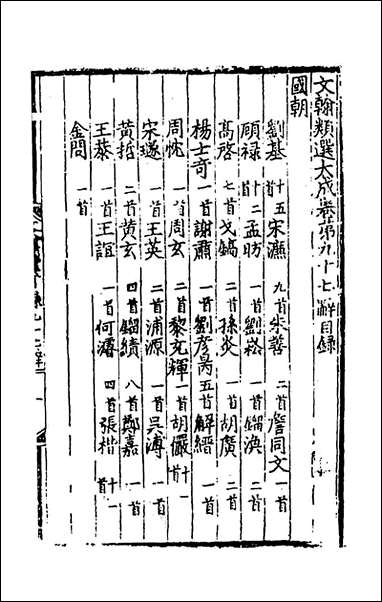 文翰類選大成卷第九十七辭目錄
國朝
劉基十五首宋濂九首朱善二首詹同文一首
顧祿十二首孟昉一首劉崧一首鎦渙一首
高啓七首戈鎬二首孫炎一首胡廣二首
楊士奇一首謝肅一首劉彥昺五首解縉一首
周忱一首周玄二首黎充輝一首胡儼十一首
宋璲一首王英二首浦源一首吳溥一首
黃哲二首黃玄四首鎦績八首鄭嘉一首
王恭一首王誼一首何濬四首張楷十一首
金問一首